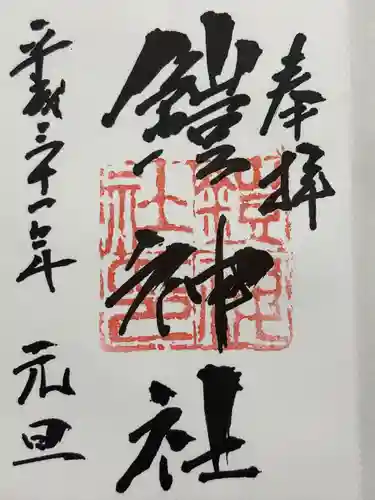 奉拝
鎧神社
平成三十一年
元旦